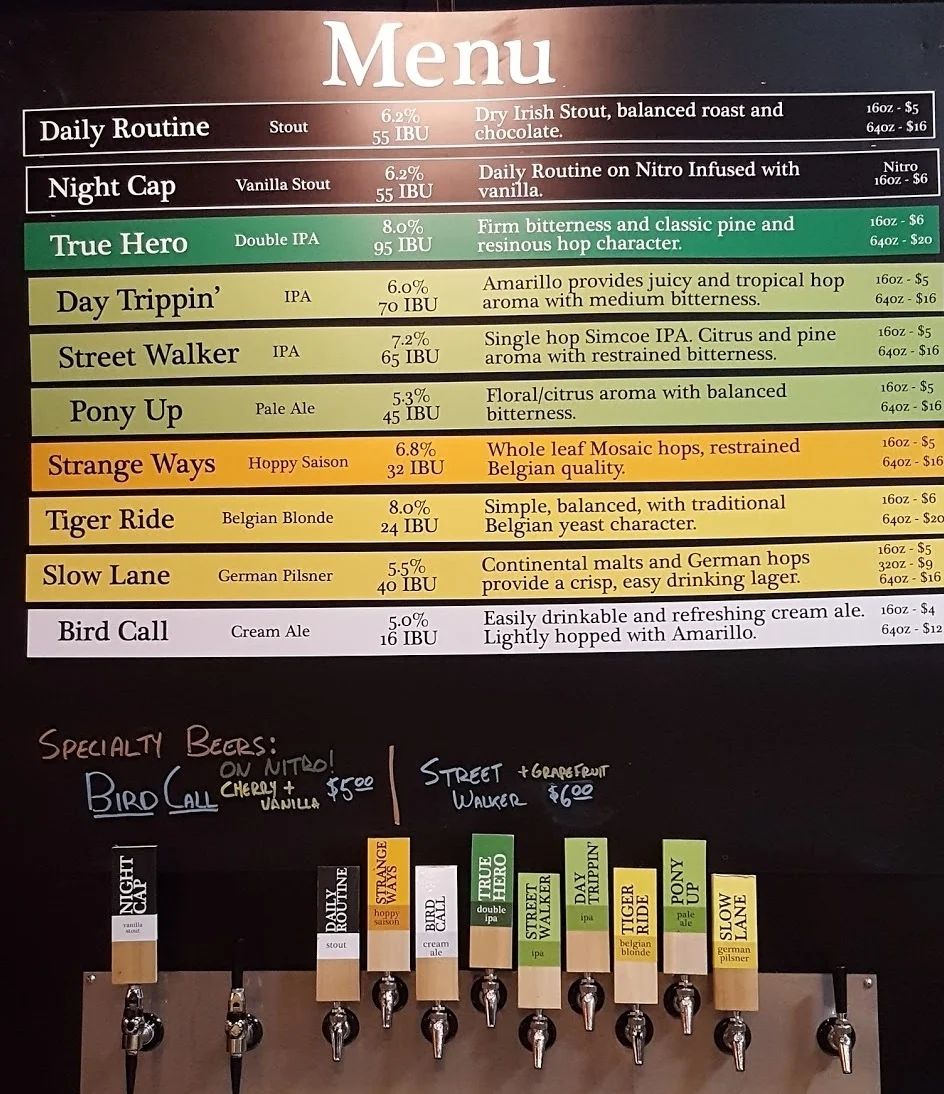 Menu
Daily Routine Stout 6.2% 55 IBU Dry Irish Stout, balanced roast and chocolate. 16oz - $5 64oz - $16
Night Cap Vanilla Stout 6.2% 55 IBU Daily Routine on Nitro Infused with vanilla. Nitro 16oz - $6
True Hero Double IPA 8.0% 95 IBU Firm bitterness and classic pine and resinous hop character. 16oz - $6 64oz - $20
Day Trippin' IPA 6.0% 70 IBU Amarillo provides juicy and tropical hop aroma with medium bitterness. 16oz - $5 64oz - $16
Street Walker IPA 7.2% 65 IBU Single hop Simcoe IPA. Citrus and pine aroma with restrained bitterness. 16oz - $5 64oz - $16
Pony Up Pale Ale 5.3% 45 IBU Floral/citrus aroma with balanced bitterness. 16oz - $5 64oz - $16
Strange Ways Hoppy Saison 6.8% 32 IBU Whole leaf Mosaic hops, restrained Belgian quality. 16oz - $5 64oz - $16
Tiger Ride Belgian Blonde 8.0% 24 IBU Simple, balanced, with traditional Belgian yeast character. 16oz - $6 64oz - $20
Slow Lane German Pilsner 5.5% 40 IBU Continental malts and German hops provide a crisp, easy drinking lager. 16oz - $5 32oz - $9 64oz - $16
Bird Call Cream Ale 5.0% 16 IBU Easily drinkable and refreshing cream ale. Lightly hopped with Amarillo. 16oz - $4 64oz - $12
SPECIALTY BEERS:
BIRD CALL ON NITRO! CHERRY + VANILLA $5.00
STREET WALKER + GRAPEFRUIT $6.00
NIGHT CAP vanilla stout
DAILY ROUTINE stout
STRANGE WAYS hoppy saison
BIRD CALL cream ale
TRUE HERO double ipa
STREET WALKER ipa
DAY TRIPPIN' ipa
TIGER RIDE belgian blonde
PONY UP pale ale
SLOW LANE german pilsner